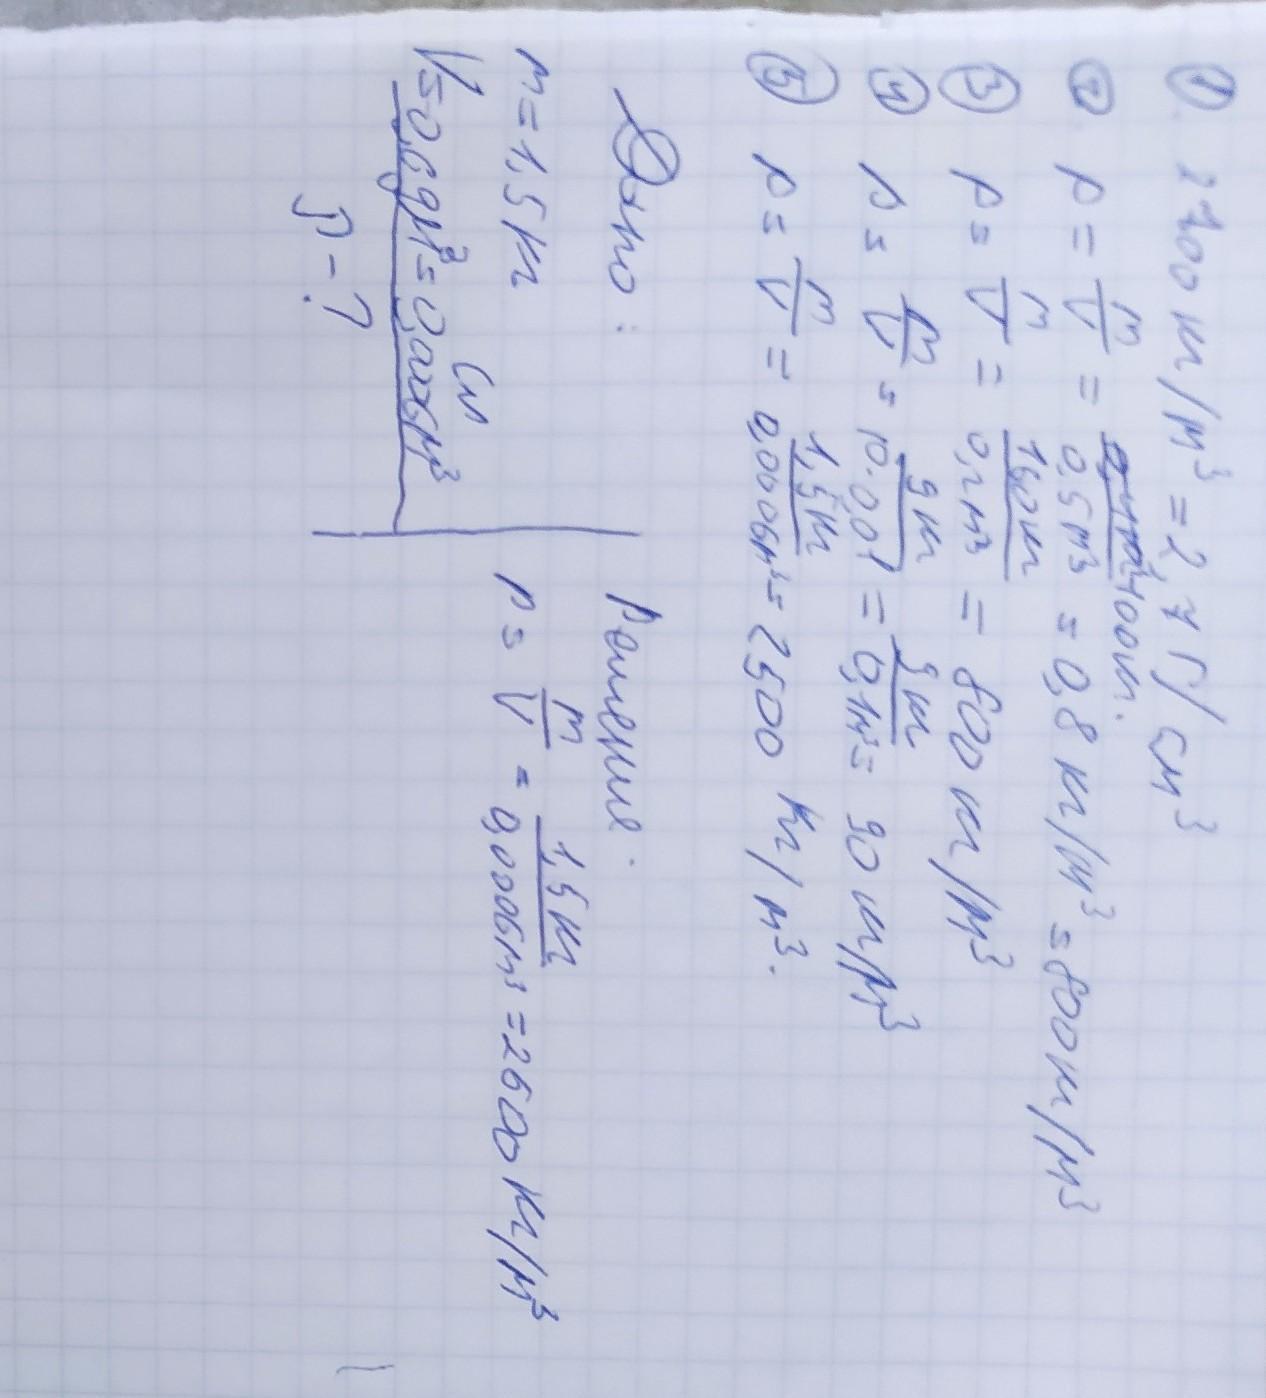 ① 2700 кг/м³ = 2,7 г/см³
② p = m/V = 400кг. / 0,5м³ = 0,8 кг/м³ = 800кг/м³
③ p = m/V = 160кг / 0,2м³ = 800 кг/м³
④ p = m/V = 9кг / 10·0,01 = 9кг / 0,1м³ = 90 кг/м³
⑤ p = m/V = 1,5кг / 0,0006м³ = 2500 кг/м³.
Дано:
m = 1,5кг
Си
V = 0,6дм³ = 0,0006м³
p - ?
Решение.
p = m/V = 1,5кг / 0,0006м³ = 2500 кг/м³